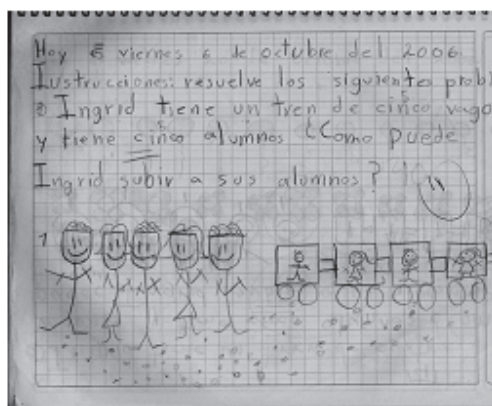 Hoy es viernes 6 de octubre del 2006.
Iustrucciones: resuelve los siguientes prob
Ingrid tiene un tren de cinco vago
y tiene cinco alumnos ¿Como puede
Ingrid subir a sus alumnos?
1